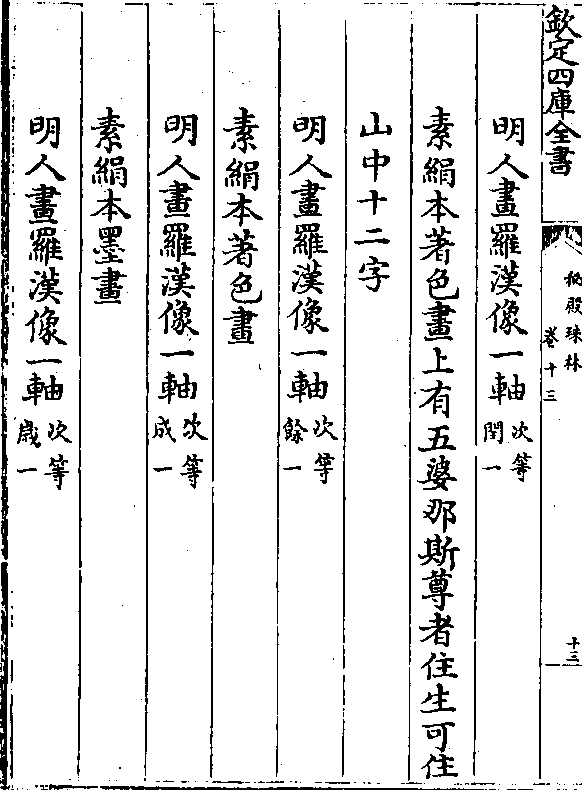 欽定四庫全書
秘殿珠林
卷十三
十三
明人畫羅漢像一軸次等閏一
素絹本著色畫上有五婆那斯尊者住生可住
山中十二字
明人畫羅漢像一軸次等餘一
素絹本著色畫
明人畫羅漢像一軸次等成一
素絹本墨畫
明人畫羅漢像一軸次等歲一